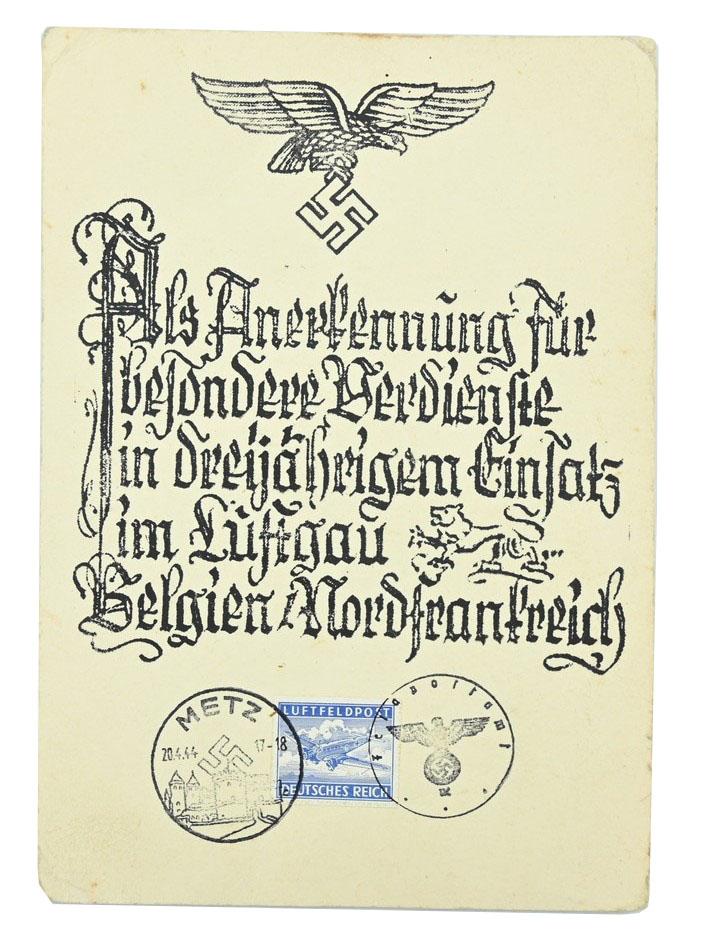 Als Anerkennung für
besondere Verdienste
in dreijährigem Einsatz
im Luftgau
Belgien Nordfrankreich
METZ 1
20.4.44 17-18
LUFTFELDPOST
DEUTSCHES REICH